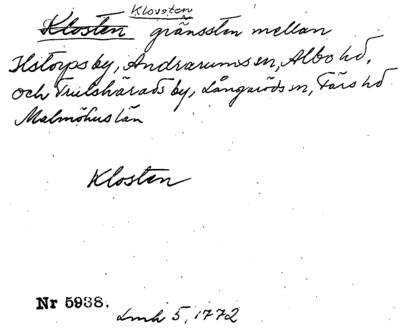 Klovsten
Klosten gränssten mellan
Hstorps by, Andrarums sn, Albo hd,
och Trulshärads by, Långaröds sn, Färs hd
Malmöhus län
Klosten
Nr 5938.
Lmh 5, 1772